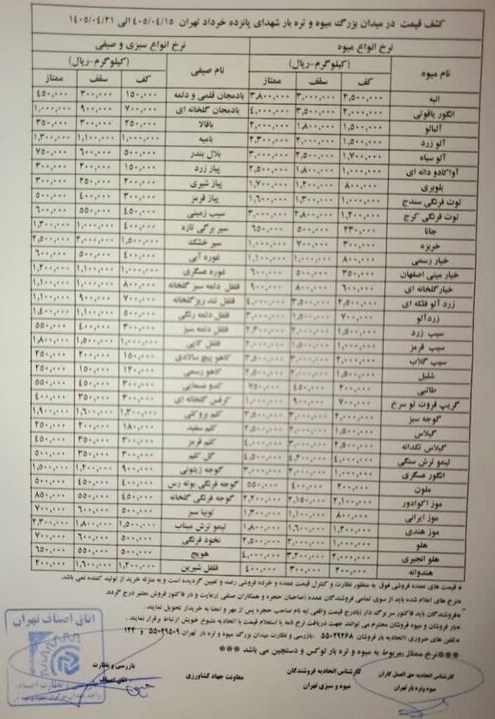 کشف قیمت در میدان بزرگ میوه و تره بار شهدای پانزده خرداد تهران ۱۴۰۵/۰۴/۱۵ الی ۱۴۰۵/۰۴/۲۱
نرخ انواع میوه نرخ انواع سبزی و صیفی
نام میوه (کیلوگرم-ریال) نام صیفی (کیلوگرم-ریال)
کف سقف ممتاز کف سقف ممتاز
انبه ۲,۵۰۰,۰۰۰ ۳,۰۰۰,۰۰۰ ۳,۸۰۰,۰۰۰ بادمجان قلمی و دلمه ۱۵۰,۰۰۰ ۳۰۰,۰۰۰ ۴۵۰,۰۰۰
انگور یاقوتی ۳,۵۰۰,۰۰۰ ۴,۰۰۰,۰۰۰ بادمجان گلخانه ای ۷۰۰,۰۰۰ ۹۰۰,۰۰۰ ۱,۰۰۰,۰۰۰
آلبالو ۱,۵۰۰,۰۰۰ ۱,۸۰۰,۰۰۰ ۲,۰۰۰,۰۰۰ باقالا ۲۵۰,۰۰۰ ۳۰۰,۰۰۰ ۳۵۰,۰۰۰
آلو زرد ۱,۵۰۰,۰۰۰ ۲,۰۰۰,۰۰۰ ۲,۳۰۰,۰۰۰ بامیه ۱,۰۰۰,۰۰۰ ۱,۱۰۰,۰۰۰ ۱,۳۰۰,۰۰۰
آلو سیاه ۱,۷۰۰,۰۰۰ ۲,۵۰۰,۰۰۰ ۳,۰۰۰,۰۰۰ بلال بندر ۵۰۰,۰۰۰ ۶۰۰,۰۰۰ ۷۵۰,۰۰۰
آواکادو دانه ای ۱,۰۰۰,۰۰۰ ۱,۸۰۰,۰۰۰ ۲,۵۰۰,۰۰۰ پیاز زرد ۱۵۰,۰۰۰ ۲۰۰,۰۰۰ ۳۰۰,۰۰۰
بلوبری ۸۰۰,۰۰۰ ۱,۲۰۰,۰۰۰ ۱,۷۰۰,۰۰۰ پیاز شیری ۲۰۰,۰۰۰ ۲۵۰,۰۰۰ ۳۰۰,۰۰۰
توت فرنگی سنندج ۱,۰۰۰,۰۰۰ ۱,۳۰۰,۰۰۰ ۱,۶۰۰,۰۰۰ پیاز قرمز ۳۰۰,۰۰۰ ۴۰۰,۰۰۰ ۵۰۰,۰۰۰
توت فرنگی کرج ۱,۲۰۰,۰۰۰ ۲,۸۰۰,۰۰۰ ۳,۰۰۰,۰۰۰ سیب زمینی ۴۵۰,۰۰۰ ۵۵۰,۰۰۰ ۶۰۰,۰۰۰
۲۳۰,۰۰۰ ۵۰۰,۰۰۰ ۶۵۰,۰۰۰ سیر برگی تازه ۴۰۰,۰۰۰ ۱,۰۰۰,۰۰۰ ۱,۳۰۰,۰۰۰
خربزه ۳۰۰,۰۰۰ ۷۰۰,۰۰۰ ۱,۰۰۰,۰۰۰ سیر خشک ۱,۵۰۰,۰۰۰ ۲,۰۰۰,۰۰۰ ۲,۵۰۰,۰۰۰
خیار رسمی ۸۰۰,۰۰۰ ۱,۰۰۰,۰۰۰ ۱,۱۰۰,۰۰۰ غوره آبی ۴۰۰,۰۰۰ ۵۰۰,۰۰۰ ۶۰۰,۰۰۰
خیار مینی اصفهان ۳۵۰,۰۰۰ ۵۰۰,۰۰۰ ۶۰۰,۰۰۰ غوره عسگری ۱,۰۰۰,۰۰۰ ۱,۱۰۰,۰۰۰ ۱,۲۰۰,۰۰۰
خیار گلخانه ای ۶۰۰,۰۰۰ ۸۰۰,۰۰۰ ۹۰۰,۰۰۰ فلفل دلمه سبز گلخانه ۸۰۰,۰۰۰ ۱,۰۰۰,۰۰۰ ۱,۱۰۰,۰۰۰
زرد آلو ۲,۵۰۰,۰۰۰ ۳,۵۰۰,۰۰۰ ۴,۰۰۰,۰۰۰ فلفل تند ریز گلخانه ۷۰۰,۰۰۰ ۹۰۰,۰۰۰ ۱,۱۰۰,۰۰۰
زردآلو ۷۰۰,۰۰۰ ۱,۵۰۰,۰۰۰ فلفل دلمه رنگی ۵۰۰,۰۰۰ ۱,۱۰۰,۰۰۰ ۱,۴۰۰,۰۰۰
سیب زرد ۱,۵۰۰,۰۰۰ ۲,۰۰۰,۰۰۰ ۲,۳۰۰,۰۰۰ فلفل دلمه سبز ۳۰۰,۰۰۰ ۴۰۰,۰۰۰ ۵۵۰,۰۰۰
سیب قرمز ۱,۵۰۰,۰۰۰ ۲,۰۰۰,۰۰۰ فلفل کاپی ۱,۰۰۰,۰۰۰ ۱,۵۰۰,۰۰۰ ۱,۸۰۰,۰۰۰
سیب گلاب ۲,۰۰۰,۰۰۰ ۳,۰۰۰,۰۰۰ ۳,۵۰۰,۰۰۰ کاهو پیچ سالادی ۱۵۰,۰۰۰ ۲۰۰,۰۰۰ ۲۵۰,۰۰۰
شلیل ۱,۵۰۰,۰۰۰ ۲,۰۰۰,۰۰۰ ۲,۵۰۰,۰۰۰ کاهو رسمی ۱۲۰,۰۰۰ ۱۵۰,۰۰۰ ۲۵۰,۰۰۰
طالبی ۲۰۰,۰۰۰ ۴۵۰,۰۰۰ ۷۵۰,۰۰۰ کدو مسمایی ۳۰۰,۰۰۰ ۴۵۰,۰۰۰ ۵۵۰,۰۰۰
گریپ فروت تو سرخ ۷۰۰,۰۰۰ ۹۰۰,۰۰۰ ۱,۰۰۰,۰۰۰ کرفس گلخانه ای ۳۰۰,۰۰۰ ۳۵۰,۰۰۰ ۴۰۰,۰۰۰
گوجه سبز ۲,۰۰۰,۰۰۰ ۳,۰۰۰,۰۰۰ ۳,۵۰۰,۰۰۰ کلم بروکلی ۱,۳۰۰,۰۰۰ ۱,۶۰۰,۰۰۰ ۱,۹۰۰,۰۰۰
گیلاس ۱,۵۰۰,۰۰۰ ۲,۰۰۰,۰۰۰ ۲,۵۰۰,۰۰۰ کلم سفید ۱۸۰,۰۰۰ ۲۰۰,۰۰۰ ۲۵۰,۰۰۰
گیلاس تکدانه ۲,۵۰۰,۰۰۰ ۳,۰۰۰,۰۰۰ ۴,۰۰۰,۰۰۰ کلم قرمز ۳۰۰,۰۰۰ ۳۵۰,۰۰۰ ۴۵۰,۰۰۰
لیمو ترش سنگی ۴,۰۰۰,۰۰۰ ۴,۲۰۰,۰۰۰ ۴,۵۰۰,۰۰۰ گل کلم ۳۰۰,۰۰۰ ۳۵۰,۰۰۰ ۵۰۰,۰۰۰
انگور عسگری ۲,۰۰۰,۰۰۰ ۳,۰۰۰,۰۰۰ ۴,۰۰۰,۰۰۰ گوجه زیتونی ۹۰۰,۰۰۰ ۱,۲۰۰,۰۰۰ ۱,۵۰۰,۰۰۰
ملون ۲۰۰,۰۰۰ ۴۰۰,۰۰۰ ۵۵۰,۰۰۰ گوجه فرنگی بوته رس ۴۰۰,۰۰۰ ۴۵۰,۰۰۰ ۵۰۰,۰۰۰
موز اکوادور ۲,۱۰۰,۰۰۰ ۲,۱۵۰,۰۰۰ ۲,۲۰۰,۰۰۰ گوجه فرنگی گلخانه ۴۵۰,۰۰۰ ۵۵۰,۰۰۰ ۸۵۰,۰۰۰
موز ایرانی ۸۰۰,۰۰۰ ۱,۱۰۰,۰۰۰ ۱,۳۰۰,۰۰۰ لوبیا سبز ۵۰۰,۰۰۰ ۶۰۰,۰۰۰ ۷۰۰,۰۰۰
موز هندی ۱,۲۰۰,۰۰۰ ۱,۶۰۰,۰۰۰ ۱,۸۰۰,۰۰۰ لیمو ترش میناب ۱,۵۰۰,۰۰۰ ۱,۸۰۰,۰۰۰ ۲,۲۰۰,۰۰۰
هلو ۱,۰۰۰,۰۰۰ ۲,۰۰۰,۰۰۰ نخود فرنگی ۵۰۰,۰۰۰ ۶۰۰,۰۰۰ ۷۰۰,۰۰۰
هلو انجیری ۲,۰۰۰,۰۰۰ ۳,۲۰۰,۰۰۰ ۴,۰۰۰,۰۰۰ هویج ۵۰۰,۰۰۰ ۵۵۰,۰۰۰ ۶۵۰,۰۰۰
هندوانه ۲۰۰,۰۰۰ ۳۰۰,۰۰۰ ۴۰۰,۰۰۰ فلفل شیرین ۱,۲۰۰,۰۰۰ ۱,۶۰۰,۰۰۰ ۲۰۰,۰۰۰
* قیمت های عمده فروشی فوق به منظور نظارت و کنترل قیمت عمده و خرده فروشی رصد و تعیین گردیده است و به منزله خرید از تولید کننده نمی باشد.
*نرخ های اعلام شده باید از سوی تمامی فروشندگان عمده (صاحبان حجره و همکاران صنفی) رعایت و در فاکتور فروش معتبر درج گردد.
*فروشندگان باید فاکتور سر برگ دار (بادرج قیمت واقعی) به نام صاحب حجره پس از مهر و امضا به خریدار تحویل نمایند.
*بارفروشان و میوه فروشان محترم می توانند جهت دریافت نرخ نامه با استعلام قیمت با اتحادیه متبوع خویش ارتباط برقرار نمایند.
*تلفن های ضروری اتحادیه بار فروشان ۵۵۰۲۹۲۶۸ -بازرسی و نظارت میدان بزرگ میوه و تره بار تهران ۵۵۰۲۹۵۰۹ و ۱۲۴
***نرخ ممتاز مربوط به میوه و تره بار لوکس و دستچین می باشد ***
کارشناس اتحادیه حق العمل کاران میوه و تره بار تهران
کارشناس اتحادیه فروشندگان میوه و سبزی تهران
معاونت جهاد کشاورزی
بازرسی و نظارت اتاق اصناف
اتاق اصناف تهران